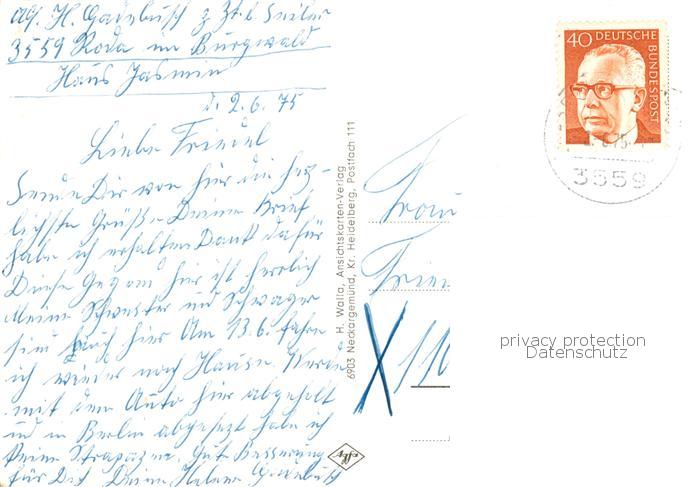 Abs. H. Gadebusch z. Zt. b. Seiler
3559 Roda im Burgwald
Haus Jasmin
d. 2.6.75
Liebe Friedel
Sende Dir von hier die herz-
lichste Grüße Deine Brief
habe ich erhalten Dank dafür
Diese Gegend hier ist herrlich
Meine Schwester und Schwager
sin auch hier Am 13.6. fahre
ich wieder nach Hause. Werde
mit dem Auto hier abgeholt
und in Berlin abgesetzt habe ich
keine Strapazen. Gute Besserung
für Dich Deine Helene Gadebusch
H. Walla, Ansichtskarten-Verlag
6903 Neckargemünd, Kr. Heidelberg, Postfach 111
Frau
Frie
X 110
40 DEUTSCHE
BUNDESPOST
75
3559
privacy protection
Datenschutz